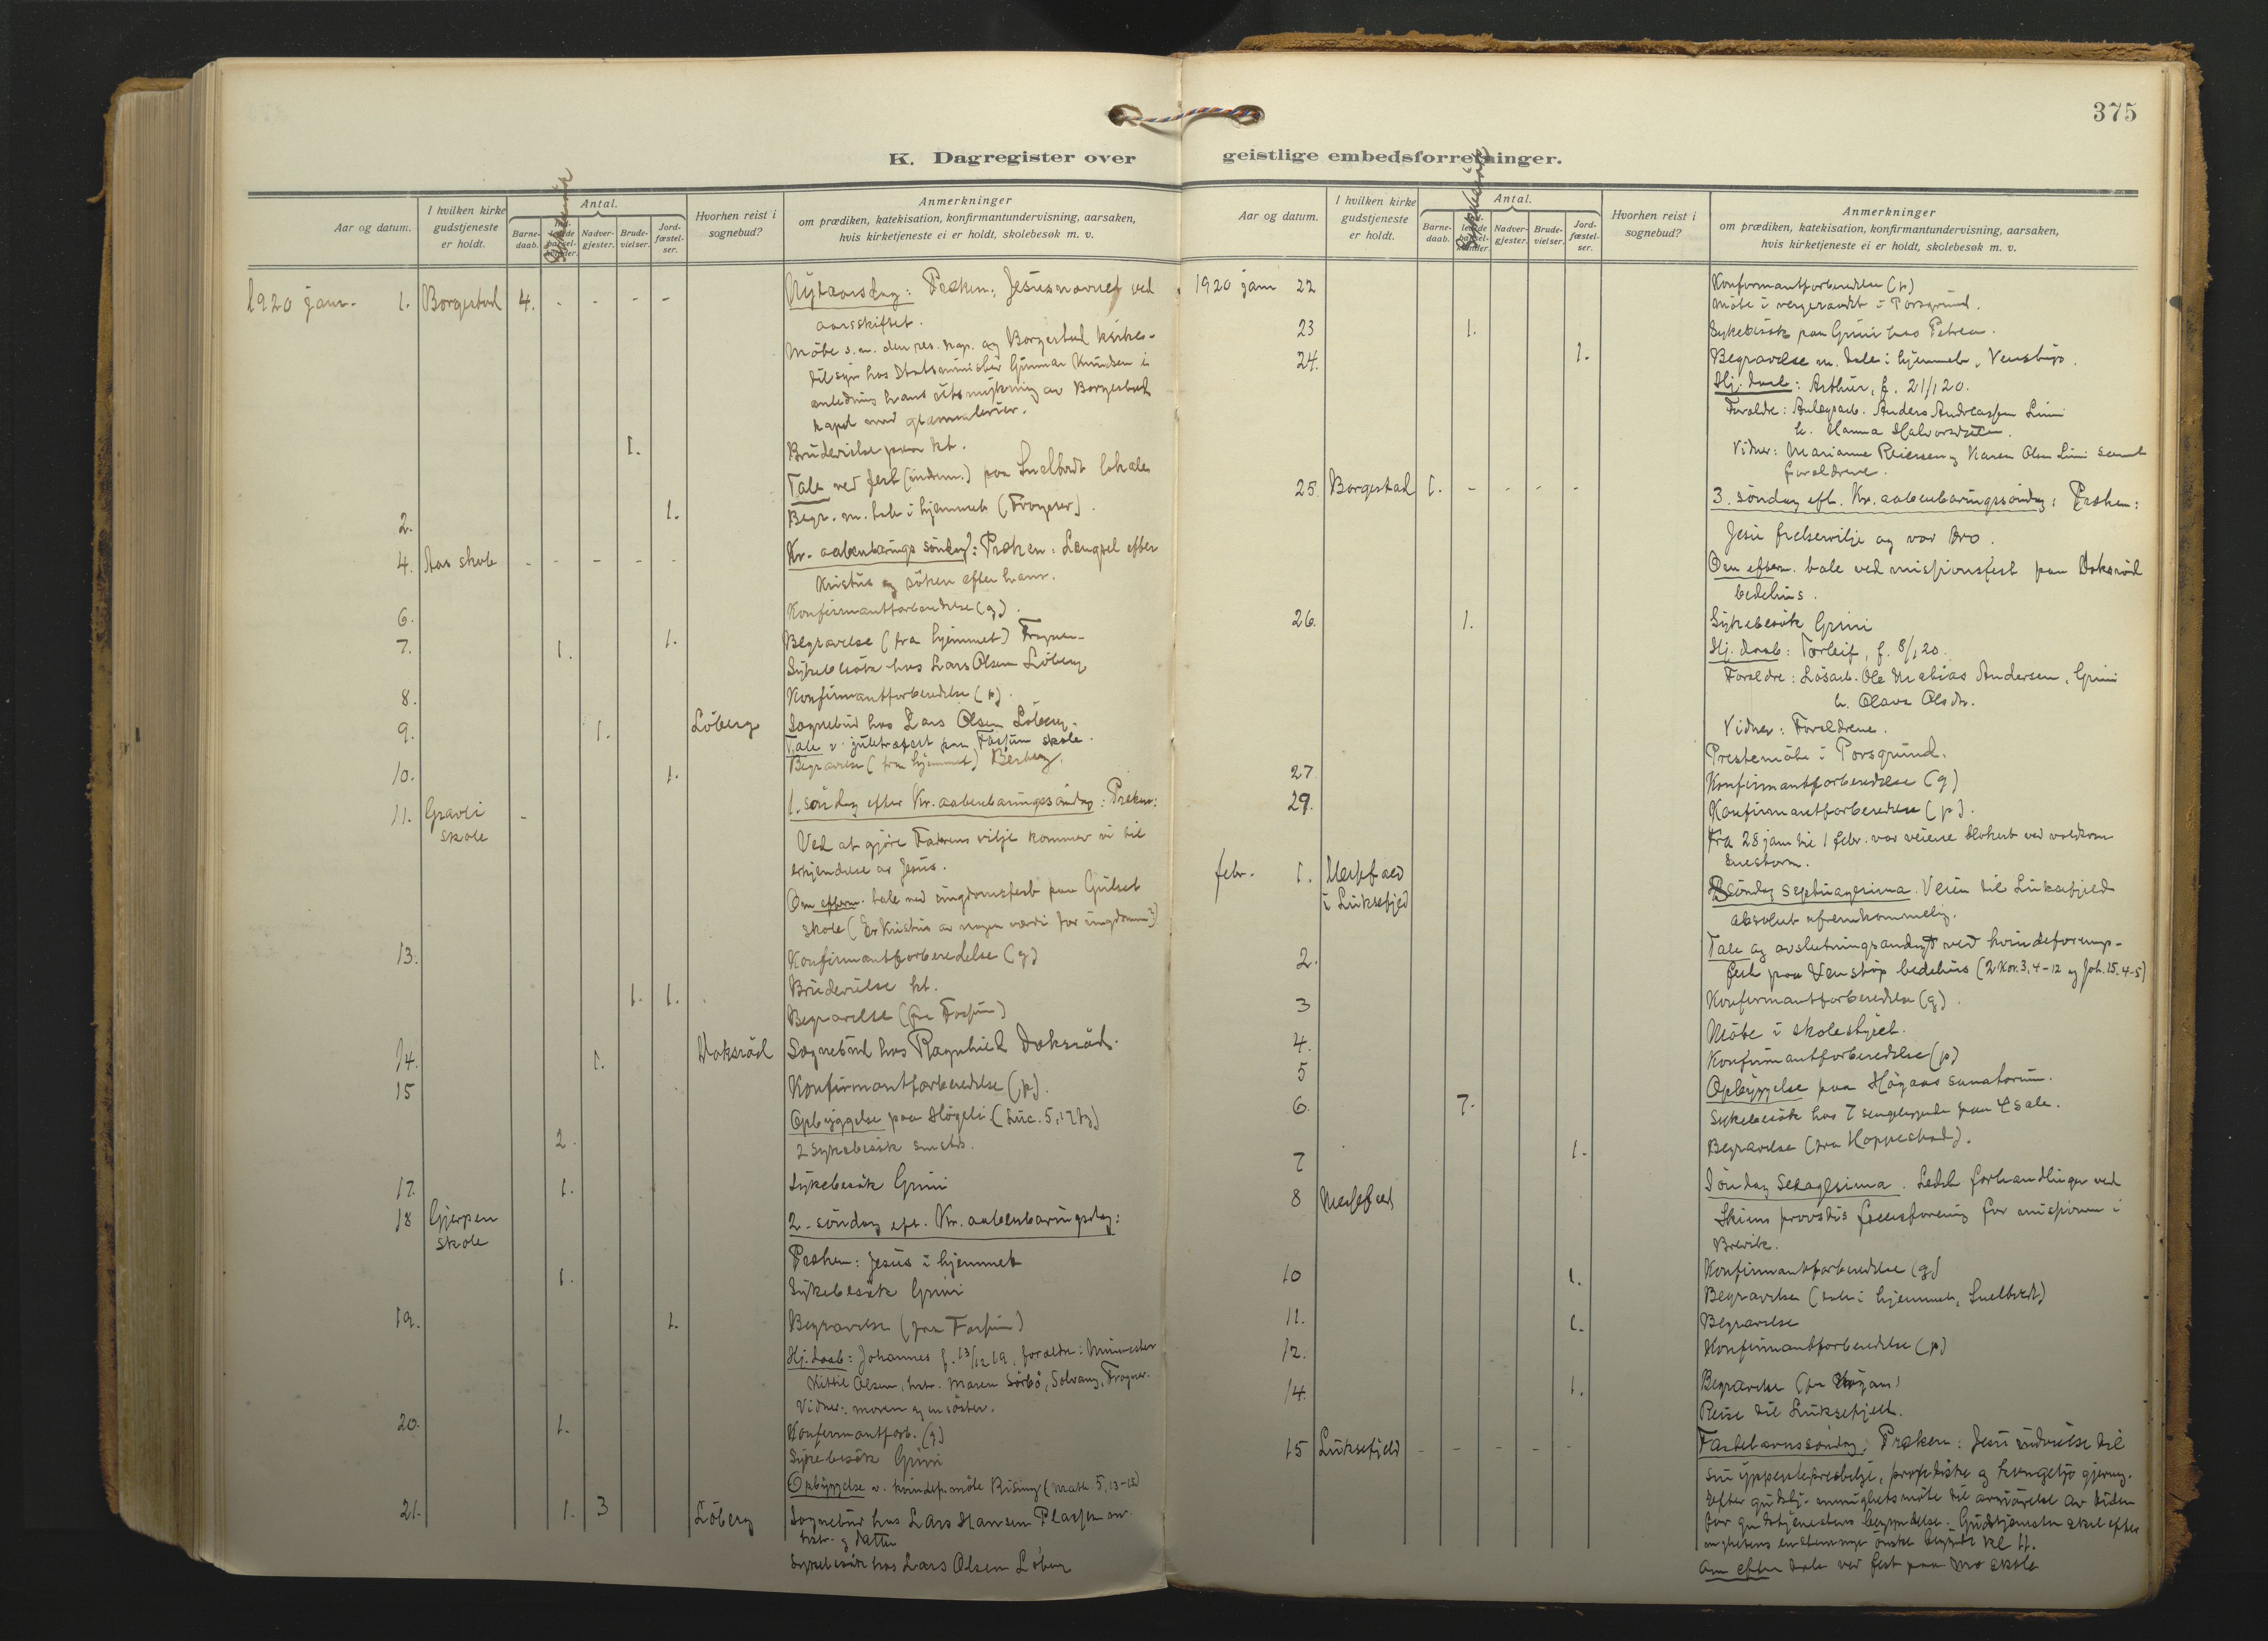 375
K. Dagregister over geistlige embedsforretninger.
Aar og datum.
I hvilken kirke gudstjeneste er holdt.
Antal.
Barne-daab.
Sykebesøk
Nadver-gjester.
Brude-vielser.
Jord-fæstel-ser.
Hvorhen reist i sognebud?
Anmerkninger
om prædiken, katekisation, konfirmantundervisning, aarsaken,
hvis kirketjeneste ei er holdt, skolebesøk m. v.
1920 jan. 1. Borgestad 4. - - - - Nytaarsdag: Præken: Jesusnavnet ved
aarsskiftet.
Møte s.m. den res. kap. og Borgestad kirke-
tilsyn hos Statsminister Gunnar Knudsen i
anledning hans utsmykning av Borgestad
kapel med glasmalerier.
1. Brudevielse paa kt.
Tale ved fest (indrem.) paa Snelbrodt lokale
2. 1. Begr. m. tale i hjemmet (Frogner).
4. Aas skole - - - - - Kr. aabenbarings søndag: Præken: Længsel efter
Kristus og søken efter ham.
6. Konfirmantforberedelse (g).
7. 1. Begravelse (fra hjemmet) Frogner.
1. Sykebesøk hos Lars Olsen Löberg
8. Konfirmantforberedelse (p).
9. 1. Löberg Sognebud hos Lars Olsen Löberg.
Tale v. juletræfest paa Fossum skole.
10. 1. Begravelse (fra hjemmet) Berberg.
11. Gravli skole - 1. søndag efter Kr. aabenbaringssøndag: Præken:
Ved at gjøre Faderens vilje kommer vi til
erkjendelse av Jesus.
Om efterm. tale ved ungdomsfest paa Gulset
skole (Er Kristus av nogen værdi for ungdommen?)
13. Konfirmantforberedelse (g)
1. Brudevielse kt.
1. Begravelse (fra Fossum)
14. 1. Doksröd Sognebud hos Ragnhild Doksröd.
15 Konfirmantforberedelse (p).
Opbyggelse paa Högeli (Luc. 5, 17 fg)
2. 2 Sykebesøk smsteds.
17. 1. Sykebesøk Grini
18 Gjerpen skole 2. søndag eft. Kr. aabenbaringsdag:
Præken: Jesus i hjemmet
1. Sykebesøk Grini
19. 1. Begravelse (fra Fossum)
Hj. daab: Johannes f. 13/12 19, forældre: Minearbeider
Kittil Olsen, hstr. Maren Sørbø, Solvang, Frogner.
Vidner: moren og en søster.
20. Konfirmantforb. (g)
1. Sykebesøk Grini
Opbyggelse v. kvindef. møte Rising (Math. 5, 13-15)
21. 1. 3 Löberg Sognebud hos Lars Hansen Plassen m.
hstr. og datter
Sykebesøk hos Lars Olsen Löberg
Aar og datum.
I hvilken kirke gudstjeneste er holdt.
Antal.
Barne-daab.
Sykebesøk
Nadver-gjester.
Brude-vielser.
Jord-fæstel-ser.
Hvorhen reist i sognebud?
Anmerkninger
om prædiken, katekisation, konfirmantundervisning, aarsaken,
hvis kirketjeneste ei er holdt, skolebesøk m. v.
1920 jan 22 Konfirmantforberedelse (p)
Møte i vergeraadet i Porsgrund.
23 1. Sykebesøk paa Grini hos Petrea.
24. 1. Begravelse m. tale i hjemmet, Venstøp.
Hj. daab: Arthur, f. 21/1 20.
Forældre: Anlegsarb. Anders Andreassen Limi
h. Hanna Halvorsdatter.
Vidner: Marianne Reiersen og Karen Olsen Limi samt
forældrene.
25. Borgestad 1. - - - - 3. søndag eft. Kr. aabenbaringssøndag: Præken:
Jesu frelservilje og vor tro.
Om efterm. tale ved missionsfest paa Doksröd
bedehus.
26. 1. Sykebesøk Grini
Hj. daab: Torleif, f. 8/1 20.
Forældre: Løsarb. Ole Mathias Andersen, Grini
h. Olava Olsdtr.
Vidner: Forældrene.
Prestemøte i Porsgrund.
27 Konfirmantforberedelse (g)
29. Konfirmantforberedelse (p).
Fra 28 jan til 1 febr. var veiene blokert ved voldsom
snestorm.
febr. 1. Messefald i Luksefjeld Søndag septuagesima. Veien til Luksefjeld
absolut ufremkommelig.
2. Tale og avslutningsandagt ved kvindeforenings-
fest paa Venstöp bedehus (2 Kor. 3, 4-12 og Joh. 15, 4-5)
3 Konfirmantforberedelse (g).
4. Møte i skolestyret.
5 Konfirmantforberedelse (p)
6. Opbyggelse paa Högaas sanatorium.
7. Sykebesøk hos 7 sengeliggende paa 4 sale.
7 1. Begravelse (fra Hoppestad).
8 Messefald Søndag Sexagesima. Ledet forhandlinger ved
Skiens provstis fællesforening for missionen i
Brevik.
10 Konfirmantforberedelse (g)
1. Begravelse (tale i hjemmet, Snelbrodt)
11. 1. Begravelse
12. Konfirmantforberedelse (p)
14. 1. Begravelse
Reise til Luksefjeld.
15 Luksefjeld - - - - - Fastelavnssøndag. Præken: Jesu indvielse til
sin yppersteprestelige, profetiske og kongelige gjerning.
Efter gudstj. menighetsmøte til avgjørelse av tiden
for gudstjenestens begyndelse. Gudstjenesten skal efter
menighetens enstemmige ønske begynde kl 11.
Om efterm tale ved fest paa Mo skole